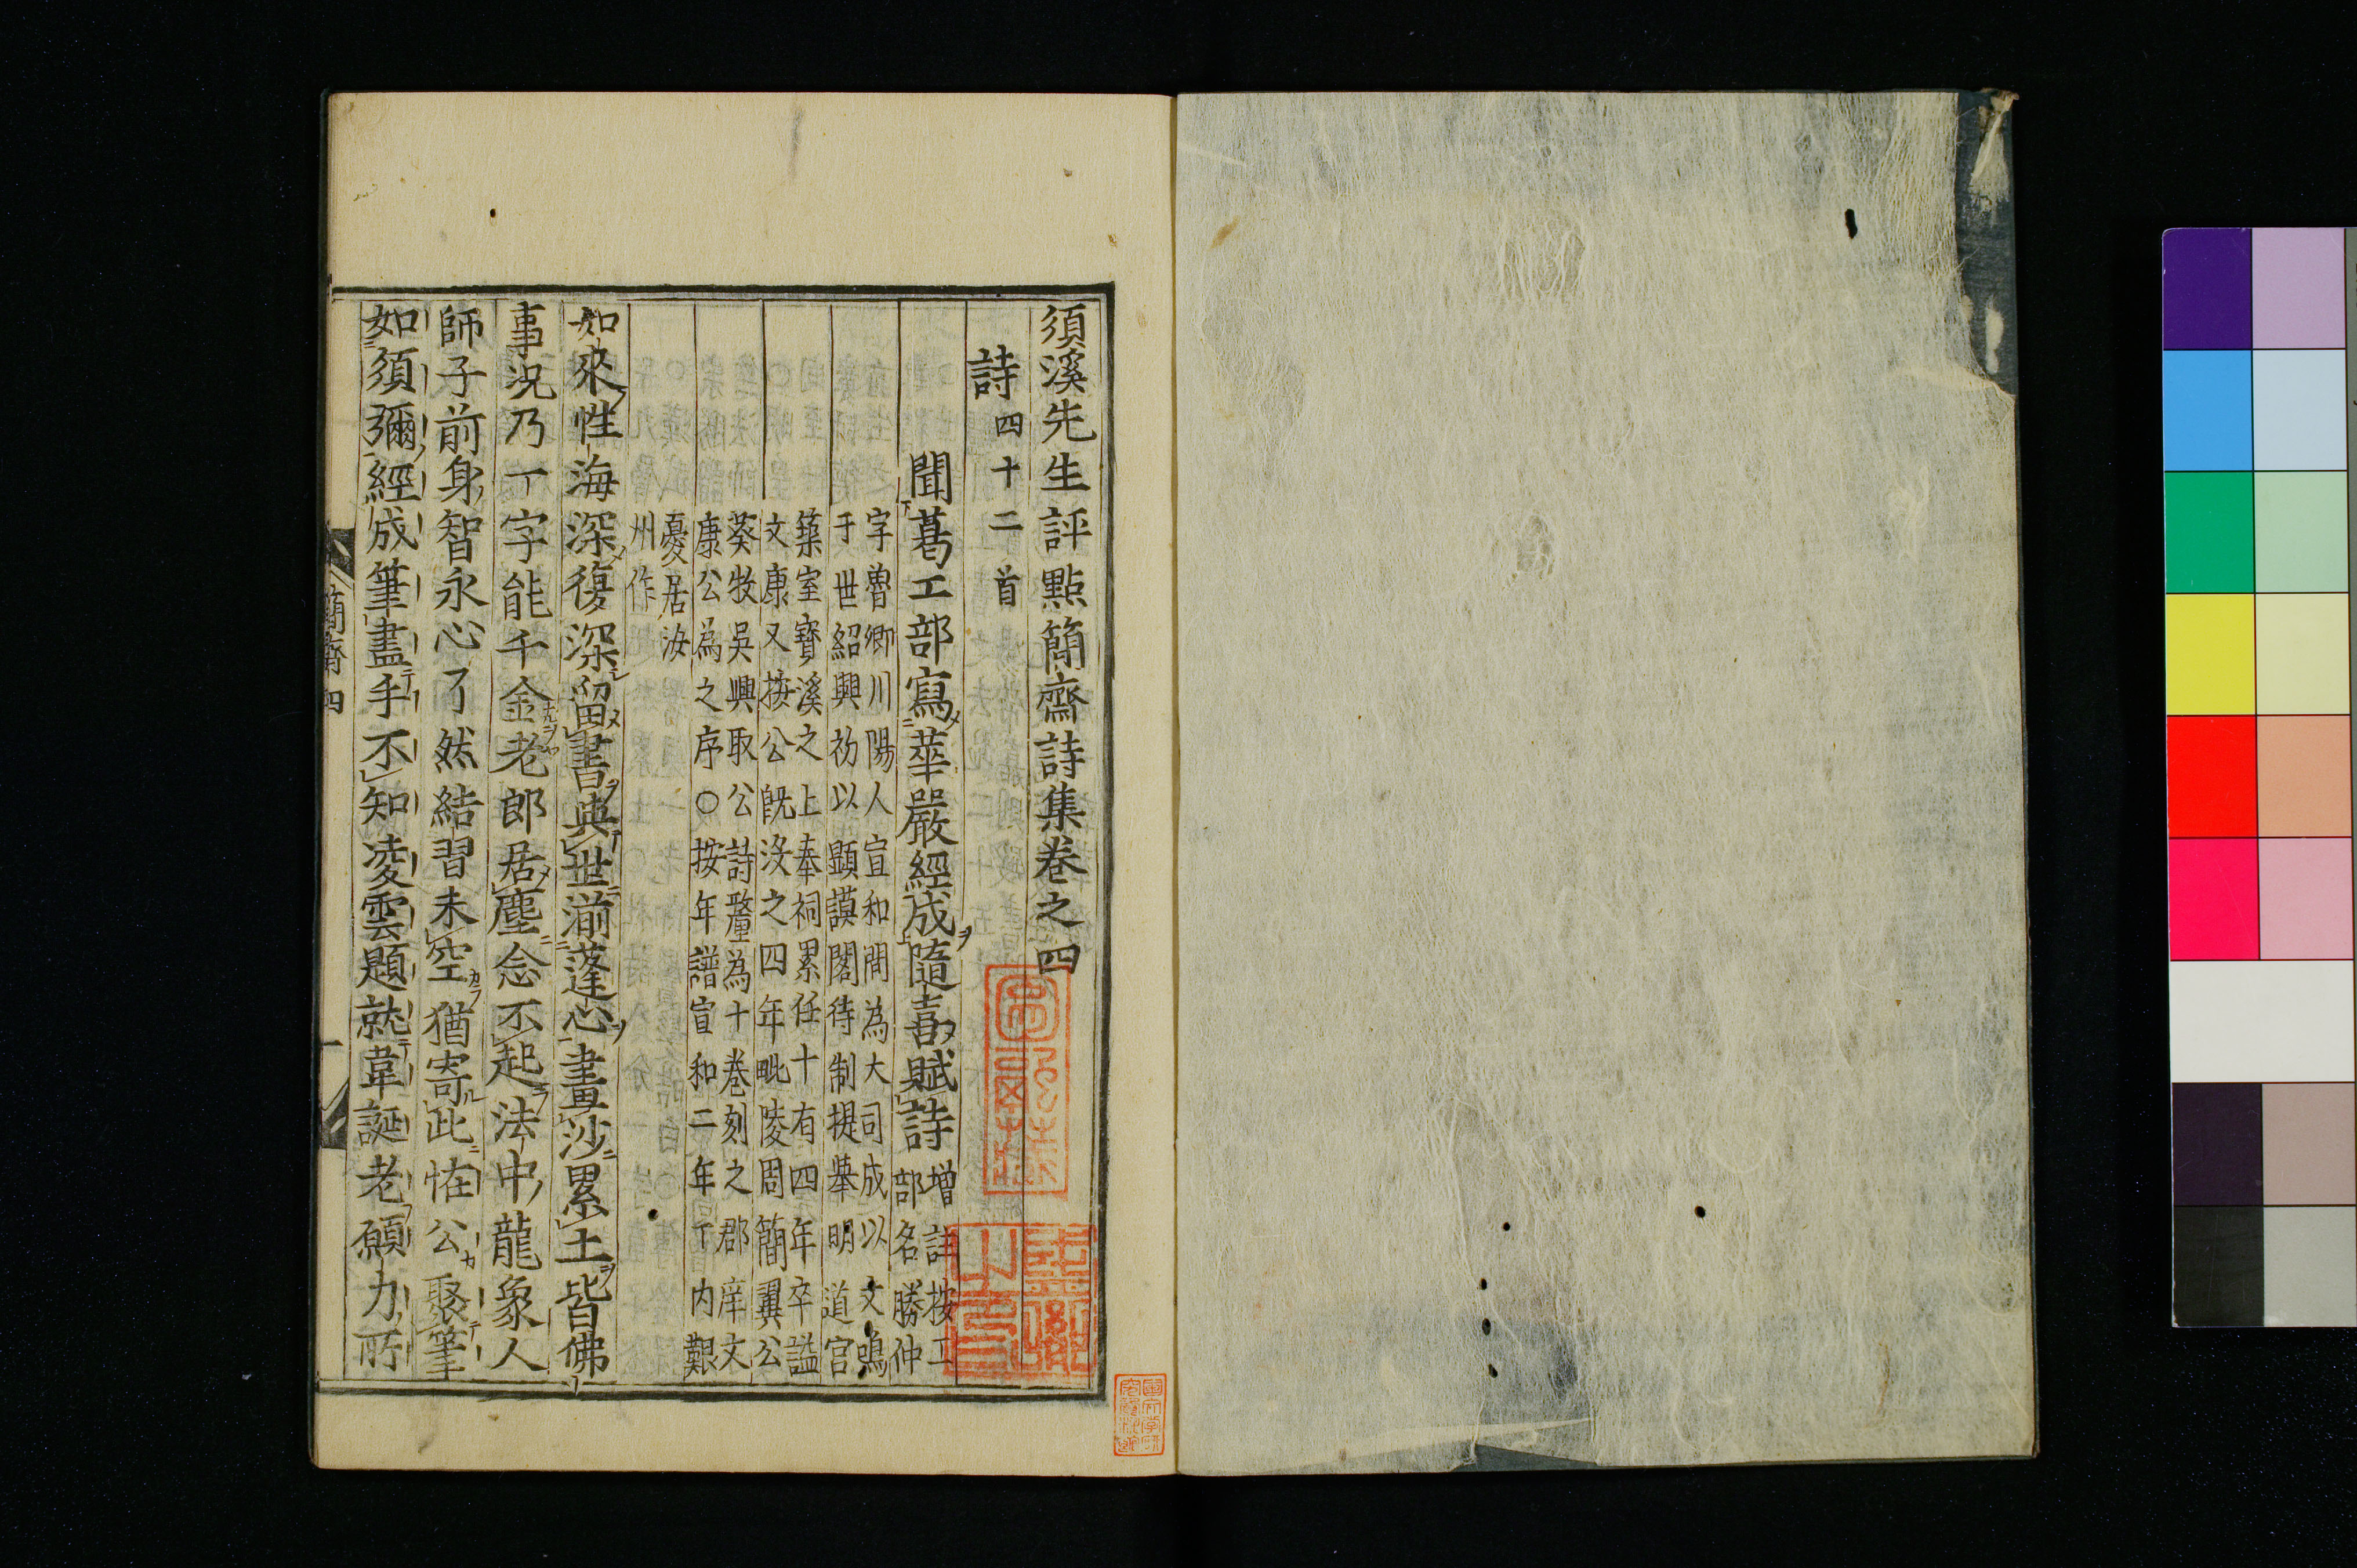 須溪先生評點簡齋詩集卷之四
詩四十二首
聞葛工部寫華嚴經成隨喜賦詩
增註按工
部名勝仲
字魯卿川陽人宣和間為大司成以文鳴
于世紹興初以顯謨閣待制提舉明道宮
築室寶溪之上奉祠累任十有四年卒謚
文康又按公既沒之四年毗陵周簡翼公
葵牧吳興取公詩釐為十卷刻之郡庠文
康公為之序○按年譜宣和二年丁內艱
憂居汝
州作
如來性海深復深留書與世湔蓬心畫沙累土皆佛
事況乃一字能千金老郎居塵念不起法中龍象人
師子前身智永心了然結習未空猶寄此恠公聚筆
如須彌經成筆盡手不知凌雲題就韋誕老願力所
簡齋四
一